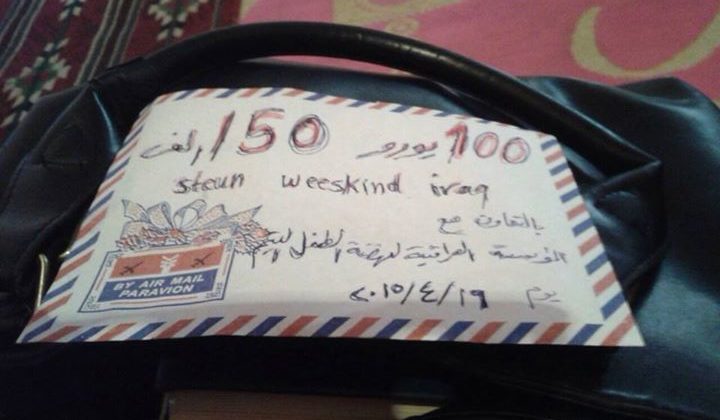 100 يورو 150 ألف
steun weeskind iraq
بالتعاون مع
المؤسسة العراقية لنهضة الطفل اليتيم
يوم ٢٠١٥/٤/١٩
BY AIR MAIL
PARAVION